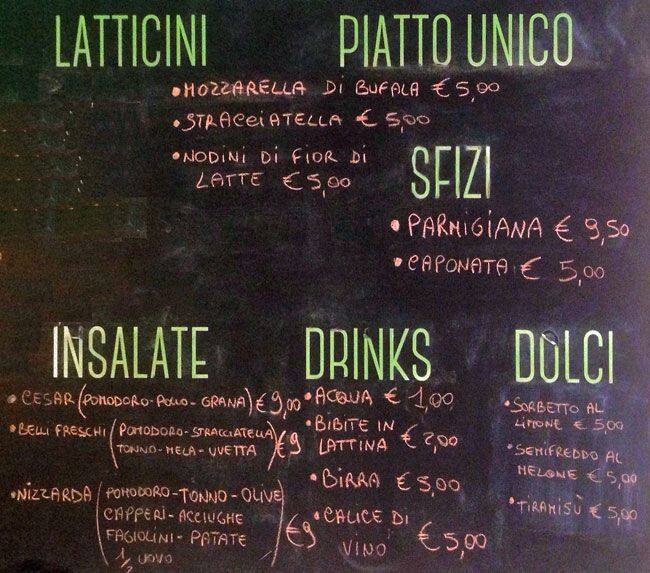 LATTICINI
PIATTO UNICO
•MOZZARELLA DI BUFALA €5,00
•STRACCIATELLA €5,00
•NODINI DI FIOR DI
LATTE €5,00
SFIZI
•PARMIGIANA €9,50
•CAPONATA €5,00
INSALATE
•CESAR (POMODORO-POLLO-GRANA) €9,00
•BELLI FRESCHI (POMODORO-STRACCIATELLA
TONNO-MELA-UVETTA) €9
•NIZZARDA (POMODORO-TONNO-OLIVE
CAPPERI-ACCIUGHE
FAGIOLINI-PATATE
1/2 UOVO) €9
DRINKS
•ACQUA €1,00
•BIBITE IN
LATTINA €2,00
•BIRRA €5,00
•CALICE DI
VINO €5,00
DOLCI
•SORBETTO AL
LIMONE €5,00
•SEMIFREDDO AL
MELONE €5,00
•TIRAMISÙ €5,00